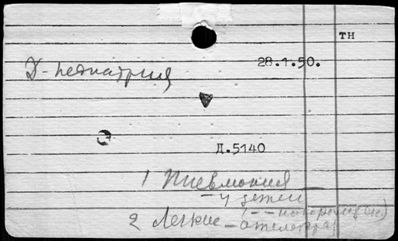 ТН
28.1.50.
Х-педиатрия
Д.5140
1 Пневмония
— у детей
2 Легкие — ателектаз